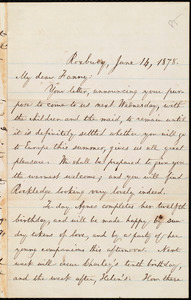 Roxbury, June 14, 1878.
My dear Fanny:
Your letter, announcing your pur-
pose to come to us next Wednesday, with
the children and the maid, to remain until
it is definitely settled whether you will go
to Europe this summer, gives us all great
pleasure. We shall be prepared to give you
the warmest welcome, and you will find
Rockledge looking very lovely indeed.
To day Agnes completes her twelfth
birthday, and will be made happy by
tokens of love, and by a party of her
young companions this afternoon. Next
week will clear Charley's tenth birthday,
and the week after, Helen's. How there